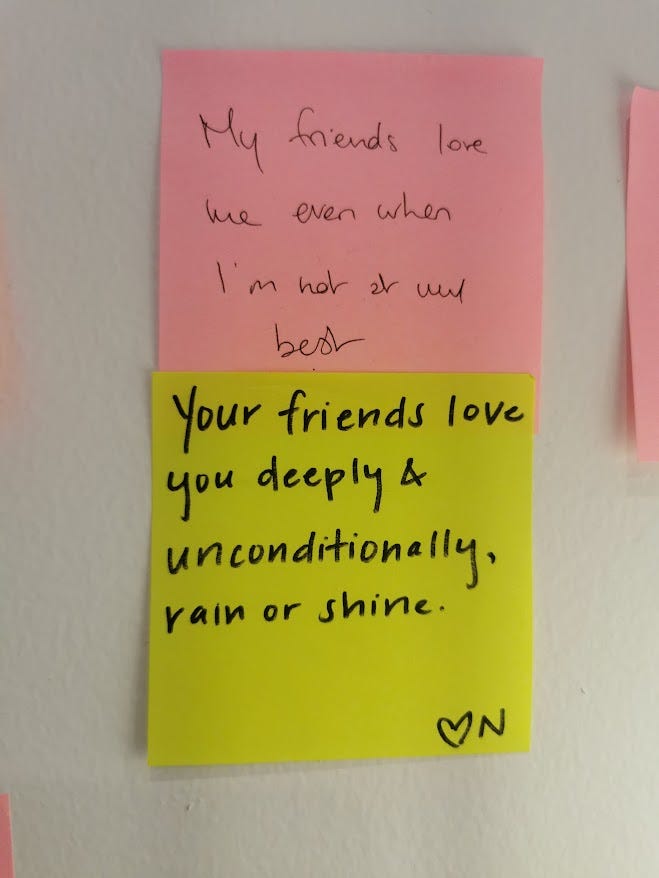 My friends love
me even when
I'm not at my
best
Your friends love
you deeply &
unconditionally,
rain or shine.
♡N